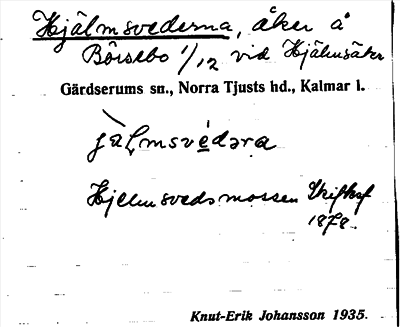 Hjälmsvederna, åker å
Börsebo 1/12 vid Hjälmsåker
Gärdserums sn., Norra Tjusts hd., Kalmar l.
jàlmsvédəra
Hjelmsvedsmossen Skifteskf
1878.
Knut-Erik Johansson 1935.